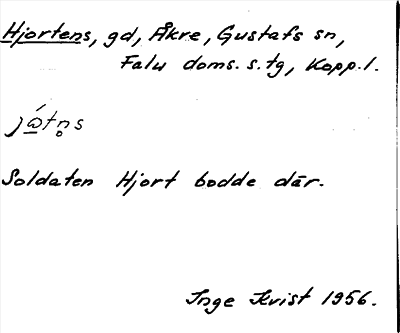 Hjortens, gd, Åkre, Gustafs sn,
Falu doms. s. tg, Kopp. l.
jώ̲tn̥s
Soldaten Hjort bodde där.
Inge Kvist 1956.